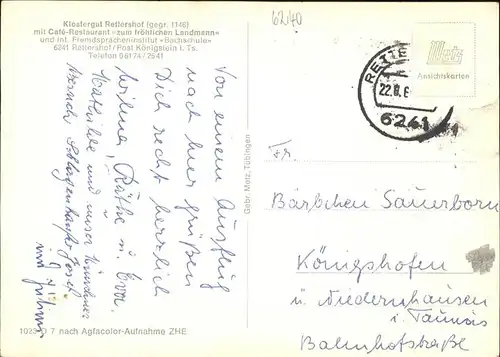 Klostergut Rettershof (gegr. 1146)
mit Café-Restaurant »zum fröhlichen Landmann«
und int. Fremdspracheninstitut »Bachschule«
6241 Rettershof / Post Königstein i. Ts.
Telefon 06174 / 2541
6240
Wetz
Ansichtskarten
RETTE
22.8.6
6241
Von einem Ausflug
nach hier grüßen
Dich recht herzlich
Wilma, Käthe u. Eva.
Kathinka und unser
und Johann
Gebr. Metz, Tübingen
Fr.
Bärbchen Sauerborn
Königshofen
u. Niedernhausen
i. Taunus
Bahnhofstraße
1023 D 7 nach Agfacolor-Aufnahme ZHE